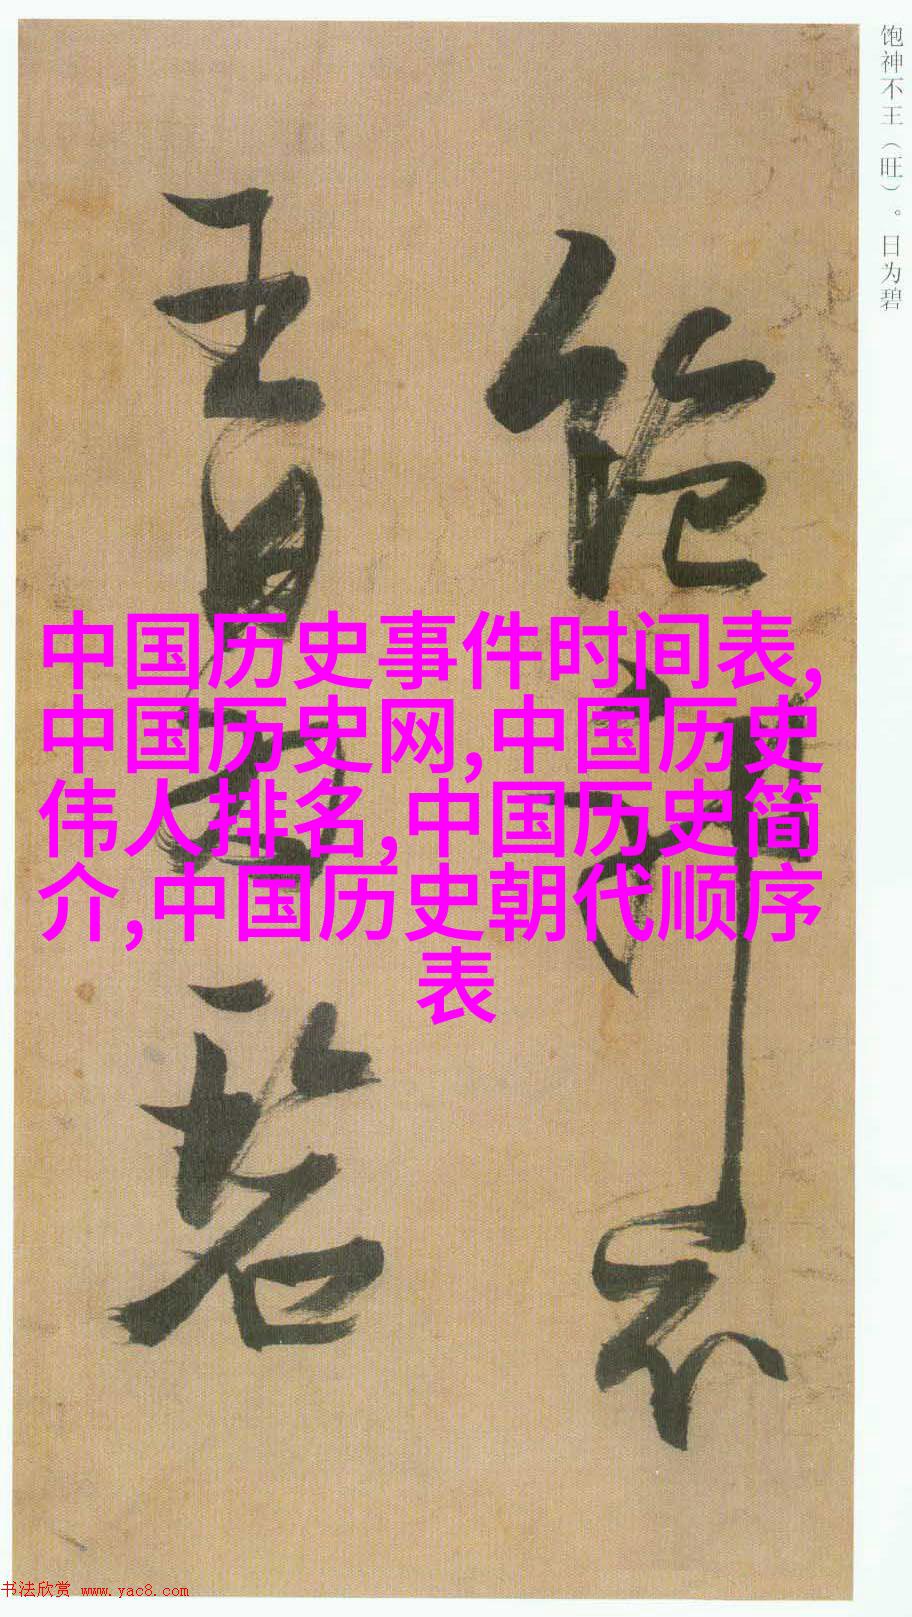 饱神不王（旺）。日为碧
饱神不
王日为碧
中国历史事件时间表,
中国历史网,中国历史
伟人排名,中国历史简
介,中国历史朝代顺序
表
书法欣赏 www.yac8.com